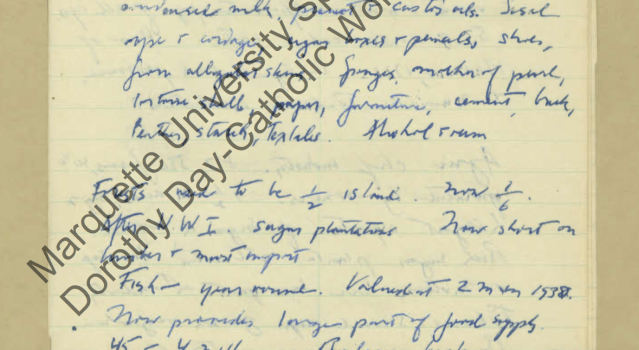 condensed milk, peanut & castor oils. Sisal
rope & cordage, sugar boxes & pencils, shoes,
from alligator skins. Sponges, mother of pearl,
tortoise shell, paper, furniture, cement, brick,
starch, textiles. Alcohol & rum
Forests used to be 1/2 island. Now 1/6.
After W.W.I. sugar plantations Now short on
lumber & must import
Fish – year round. Valued at 2 m in 1938.
Now provides larger part of food supply.
Marquette University
Dorothy Day-Catholic Wor